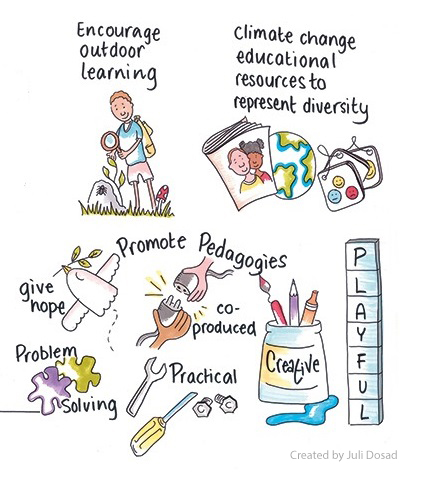 Encourage
outdoor
learning
Climate change
educational
resources to
represent diversity
Promote Pedagogies
give
hope
co-
produced
Problem
Solving
Practical
Creative
PLAYFUL
Created by Juli Dosad